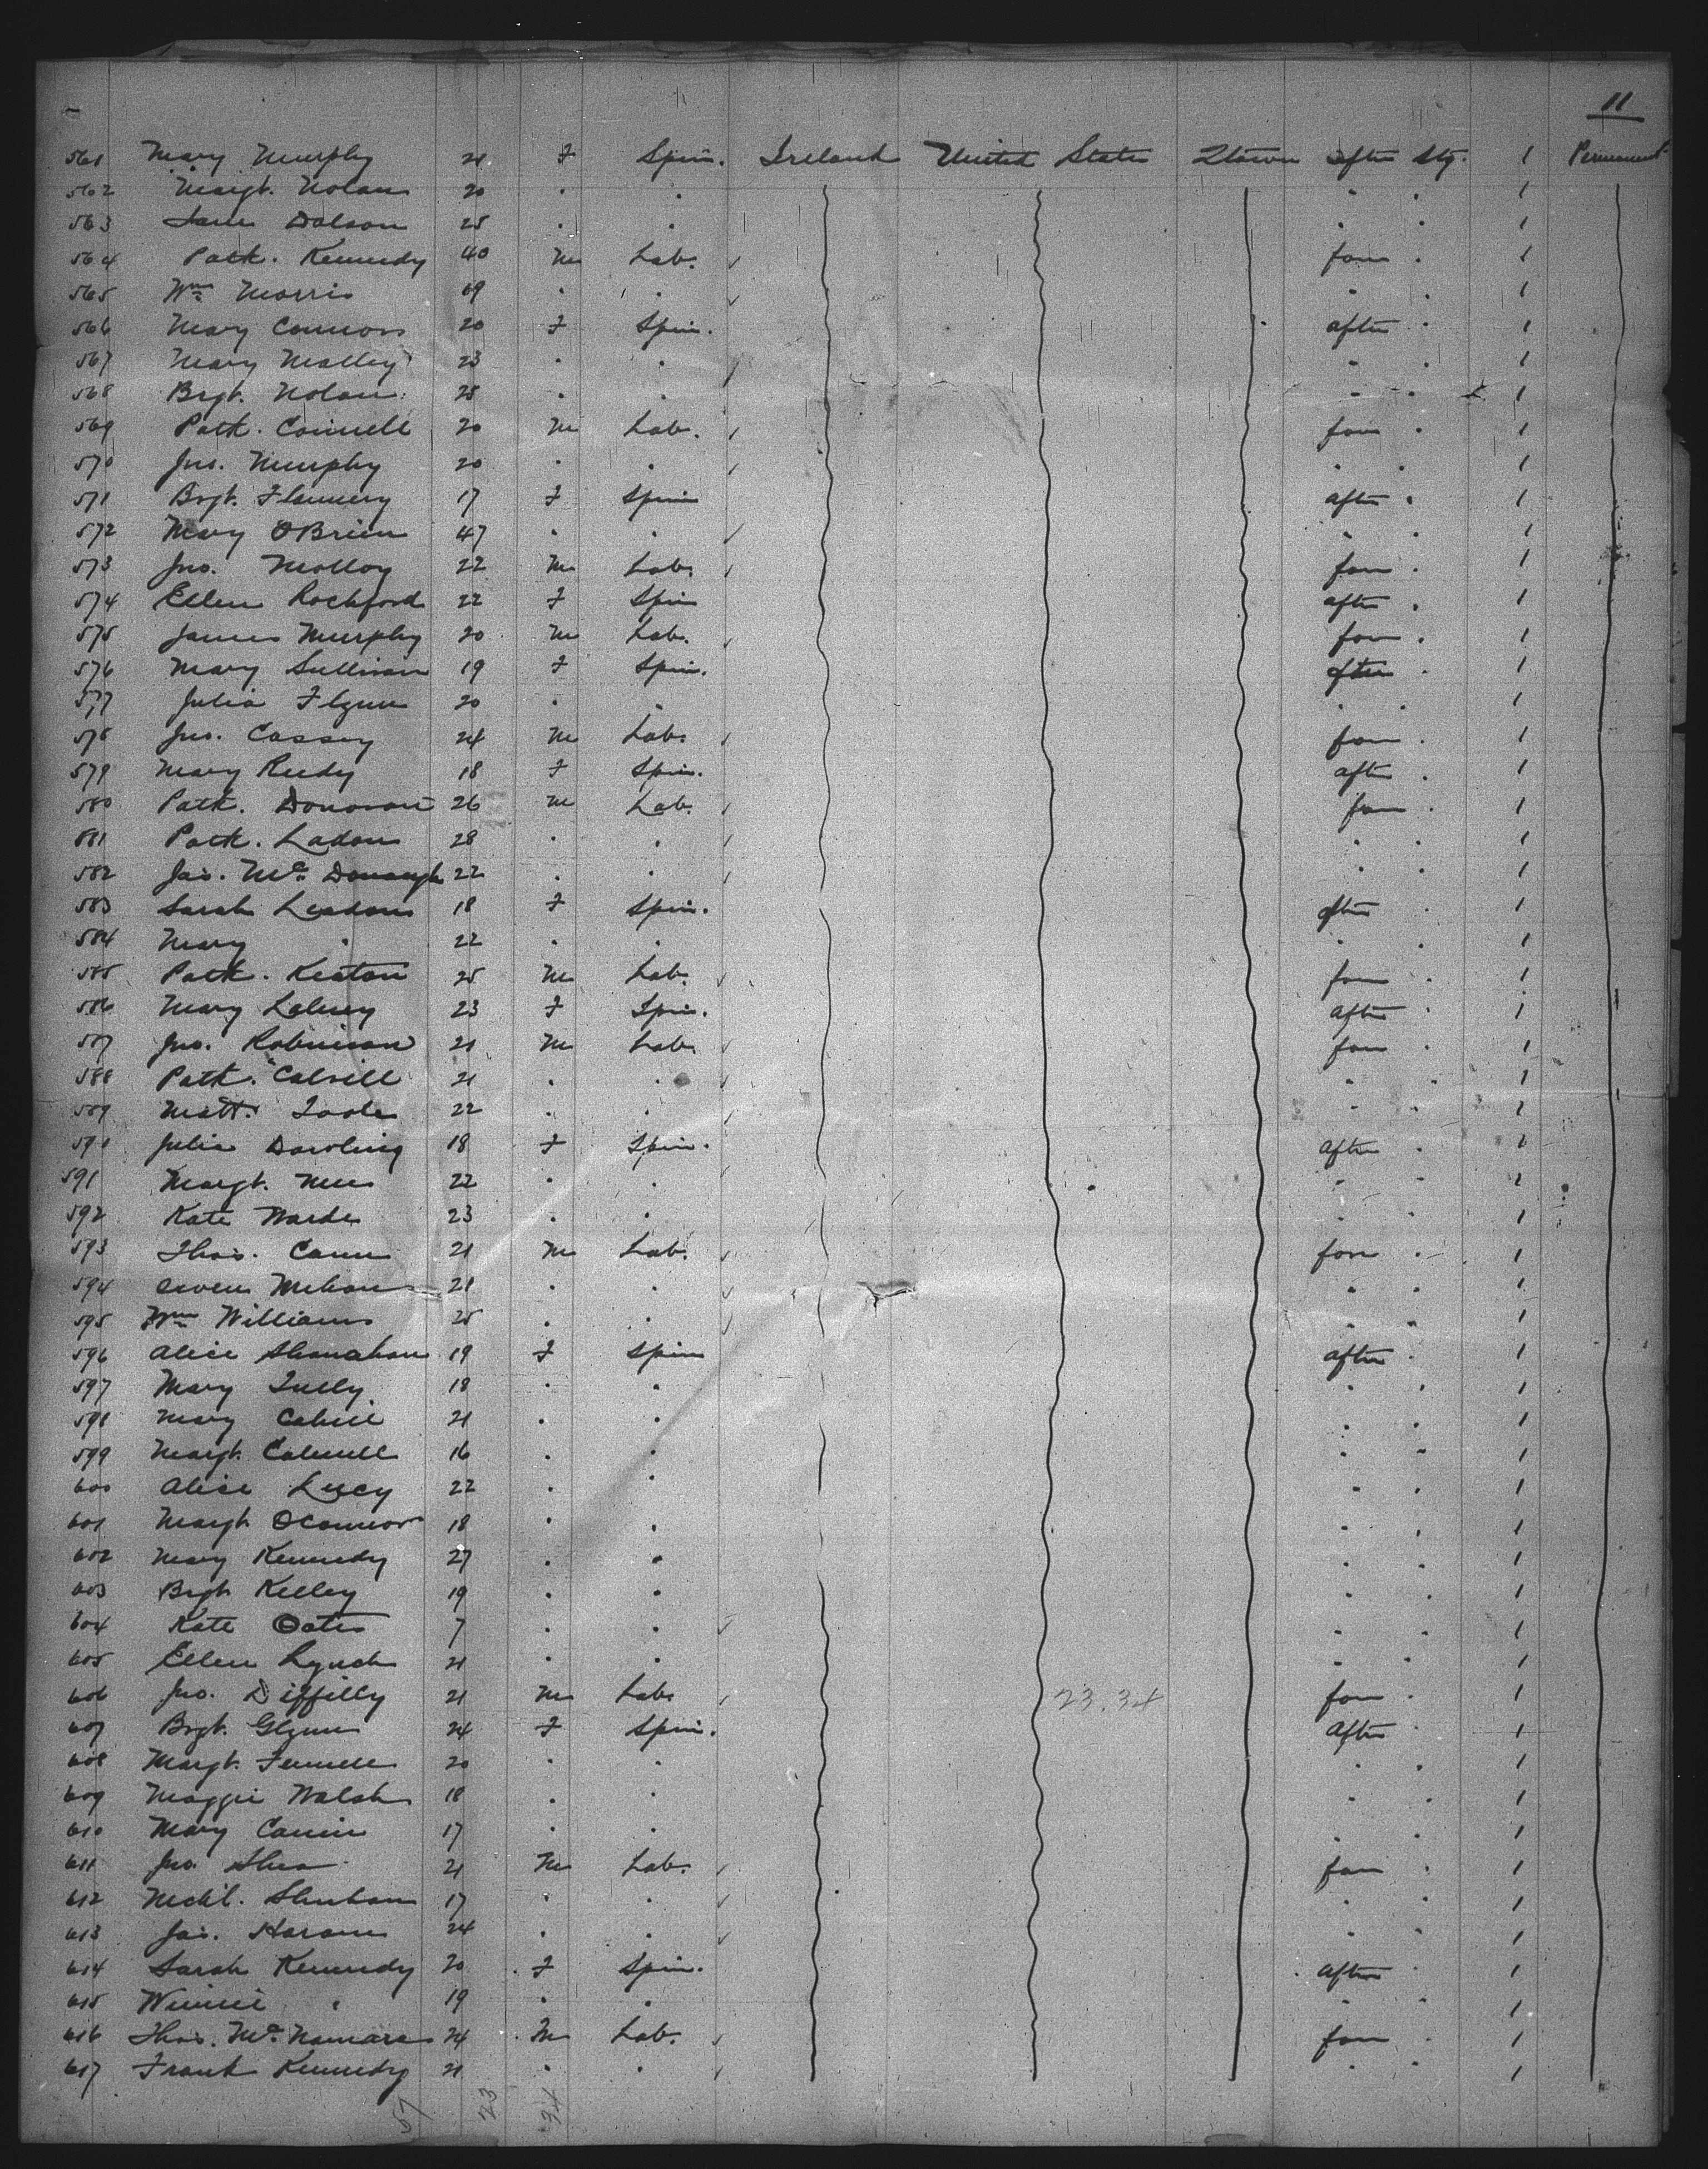 11
561 Mary Murphy 21 F Spin. Ireland United States Qtown after Stg. 1 Permanent
562 Margt. Nolan 20 " " " " 1
563 Jane Dolson 25 " " " " 1
564 Patk. Kennedy 40 M Lab. ✓ for " 1
565 Wm Morris 19 " " ✓ " " 1
566 Mary Connors 20 F Spin. after " 1
567 Mary Malley 23 " " " " 1
568 Brgt. Nolan 25 " " " " 1
569 Patk. Connell 20 M Lab. ✓ for " 1
570 Jno. Murphy 20 " " ✓ " " 1
571 Brgt. Flannery 17 F Spin after " 1
572 Mary OBrien 47 " " ✓ " " 1
573 Jno. Molloy 22 M Lab. ✓ for " 1
574 Ellen Rochford 22 F Spin after " 1
575 James Murphy 20 M Lab. ✓ for " 1
576 Mary Sullivan 19 F Spin. after " 1
577 Julia Flynn 20 " " " " 1
578 Jno. Cassey 24 M Lab. ✓ for " 1
579 Mary Reedy 18 F Spin. after " 1
580 Patk. Donovan 26 M Lab. ✓ for " 1
581 Patk. Ladon 28 " " ✓ " " 1
582 Jas. McDonaugh 22 " " ✓ " " 1
583 Sarah Leadon 18 F Spin. after " 1
584 Mary " 22 " " " " 1
585 Patk. Keaton 25 M Lab. ✓ for " 1
586 Mary Lahey 23 F Spin. after " 1
587 Jno. Robinson 21 M Lab. ✓ for " 1
588 Patk. Colvill 21 " " ✓ " " 1
589 Matt. Toole 22 " " ✓ " " 1
590 Julia Dowling 18 F Spin. after " 1
591 Margt. 22 " " " " 1
592 Kate Warde 23 " " " " 1
593 Thos. Cann 21 M Lab. ✓ for " 1
594 Owen Mehan 21 " " ✓ " " 1
595 Wm Williams 25 " " ✓ " " 1
596 Alice Shanahan 19 F Spin after " 1
597 Mary Tully 18 " " " " 1
598 Mary Cahill 21 " " " " 1
599 Margt. Calwell 16 " " " " 1
600 Alice Lucy 22 " " " " 1
601 Margt OConnor 18 " " " " 1
602 Mary Kennedy 27 " " " " 1
603 Brgt Kelley 19 " " " " 1
604 Kate Oates 7 " " ✓ " " 1
605 Ellen Lynch 21 " " " " 1
606 Jno. Diffilly 21 M Lab. ✓ 23.34 for " 1
607 Brgt. Glynn 24 F Spin. after " 1
608 Margt. Fennell 20 " " " " 1
609 Maggie Walsh 18 " " " " 1
610 Mary Cannin 17 " " " " 1
611 Jno. Shea 21 M Lab. ✓ for " 1
612 Michl. Sheehan 17 " " ✓ " " 1
613 Jas. Haran 24 " " ✓ " " 1
614 Sarah Kennedy 20 F Spin. after " 1
615 Winnie " 19 " " " " 1
616 Thos. McNamara 24 M Lab. ✓ for " 1
617 Frank Kennedy 21 " " ✓ " " 1
57 23 34